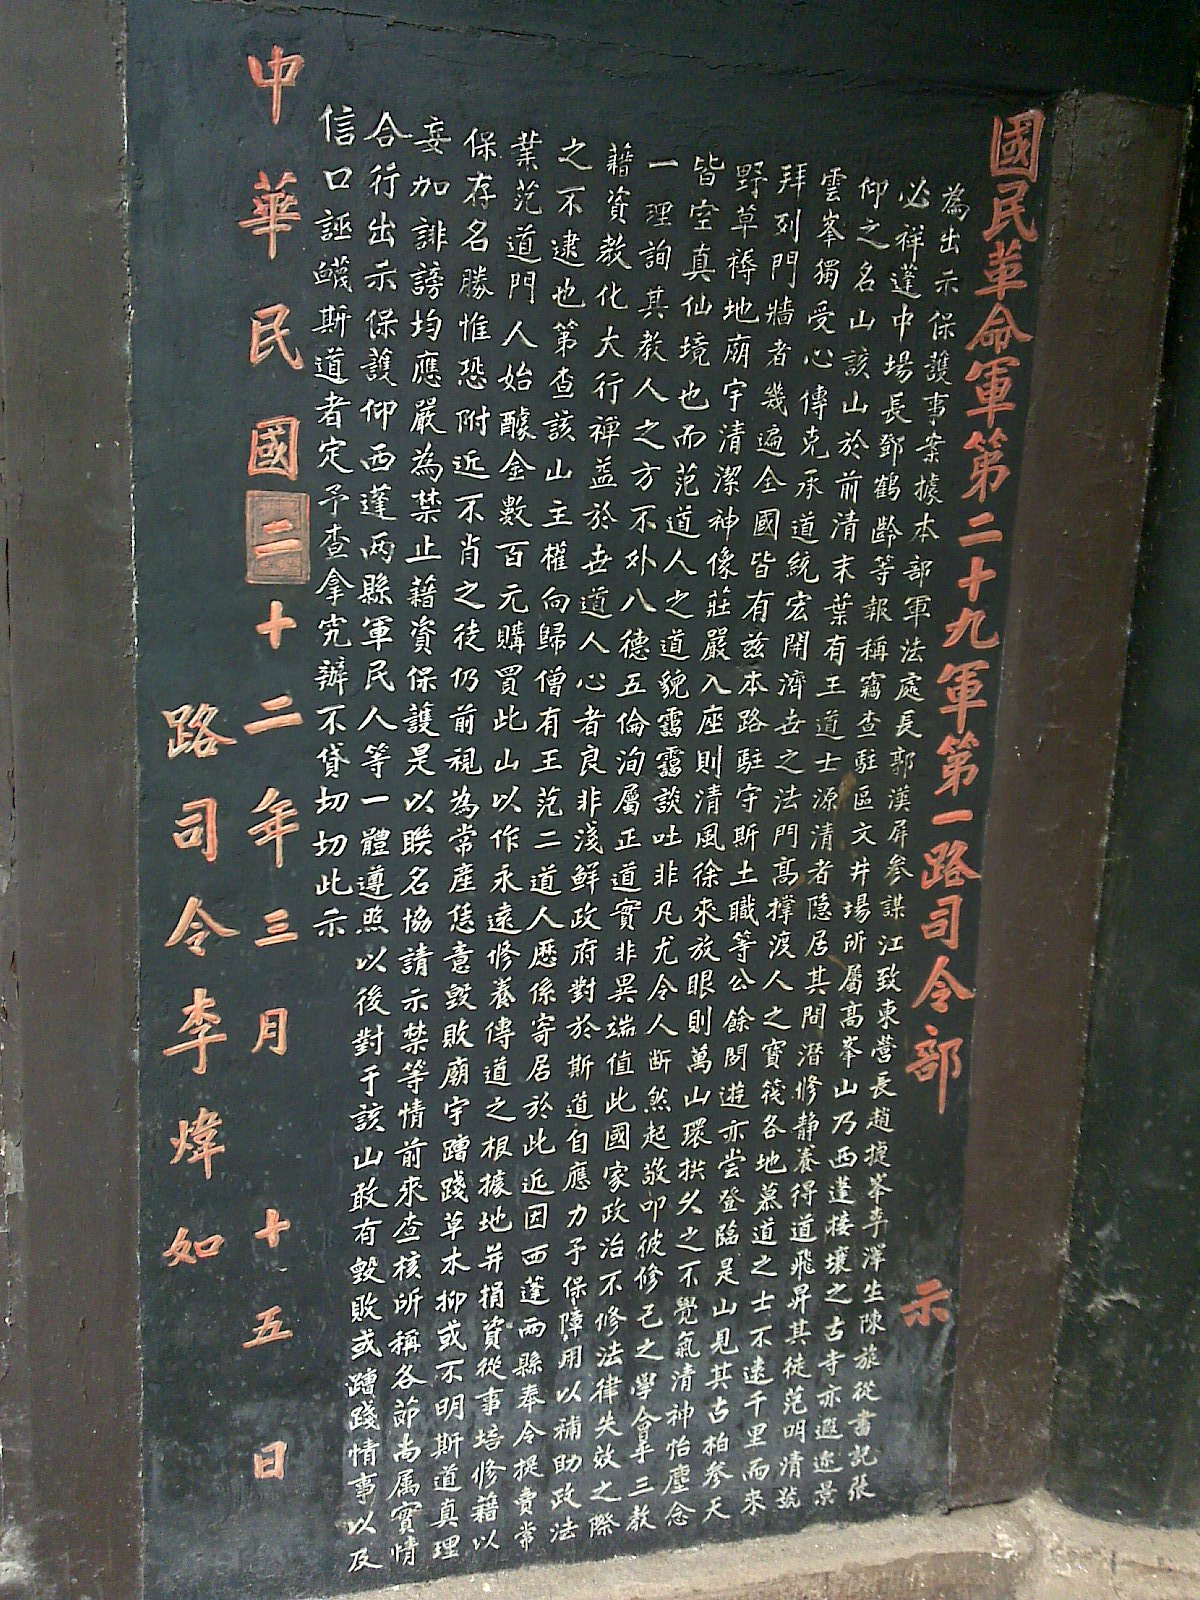 國民革命軍第二十九軍第一路司令部 示
為出示保護事案據本部軍法處長郭漢屏參謀江致東營長趙捷峯李澤生陳旅從書記張
必祥蓬中場長鄧鶴齡等報稱竊查駐區文井場所屬高峯山乃西蓬接壤之古寺亦遐邇景
仰之名山該山於前清末葉有王道士源清者隱居其間潛修靜養得道飛昇其徒范明清號
雲峯獨受心傳克承道統宏開濟世之法門高撑渡人之寶筏各地慕道之士不遠千里而來
拜列門牆者幾遍全國皆有茲本路駐守斯土職等公餘閱遊亦尝登臨是山見其古柏參天
野草褥地廟宇清潔神像莊嚴入座則清風徐來放眼則萬山環拱久之不覺氣清神怡塵念
皆空真仙境也而范道人之道貌靄靄談吐非凡尤令人斷然起敬叩彼修己之學會三教
一理詢其教人之方不外八德五倫洵屬正道實非異端值此國家政治不修法律失效之際
藉資教化大行禪益於世道人心者良非淺鮮政府對於斯道自應力予保障用以補助政法
之不逮也第查該山主權向歸僧有王范二道人歷係寄居於此近因西蓬兩縣奉令提賣常
業范道門人始醵金數百元購買此山以作永遠修養傳道之根據地并捐資從事培修藉以
保存名勝惟恐附近不肖之徒仍前視為常產恁意毀敗廟宇蹧踐草木抑或不明斯道真理
妄加誹謗均應嚴為禁止藉資保護是以聯名協請示禁等情前來查核所稱各節尚属實情
合行出示保護仰西蓬兩縣軍民人等一體遵照以後對于該山敢有毀敗或蹧踐情事以及
信口誣衊斯道者定予查拿究辦不貸切切此示
中華民國二十二年三月十五日
路司令李煒如